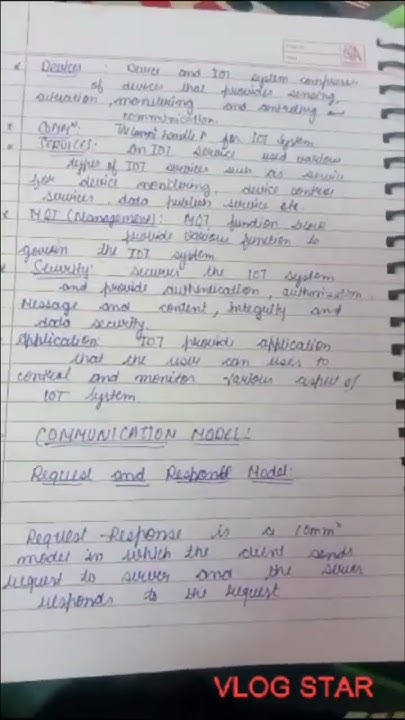 * Devices : Device and IOT system comprises
of devices that provides sensing,
actuation, monitoring and controlling
communication.
* COMMn: The Comm handle for IOT system
* SERVICES: an IOT service used various
types of IOT services such as service
for device monitoring, device control
services, data publish service etc.
* MQT (Management): MQT function
provide various function to
govern the IOT system
* Security: secures the IOT system
and provide authentication, authorization,
Message and content, integrity and
data security.
Application: IOT provide application
that the user can uses to
control and monitor various aspect of
IOT system.
COMMUNICATION MODEL:
Request and Response Model:
Request-Response is a commn
model in which the client sends
request to server and the server
responds to the request
VLOG STAR